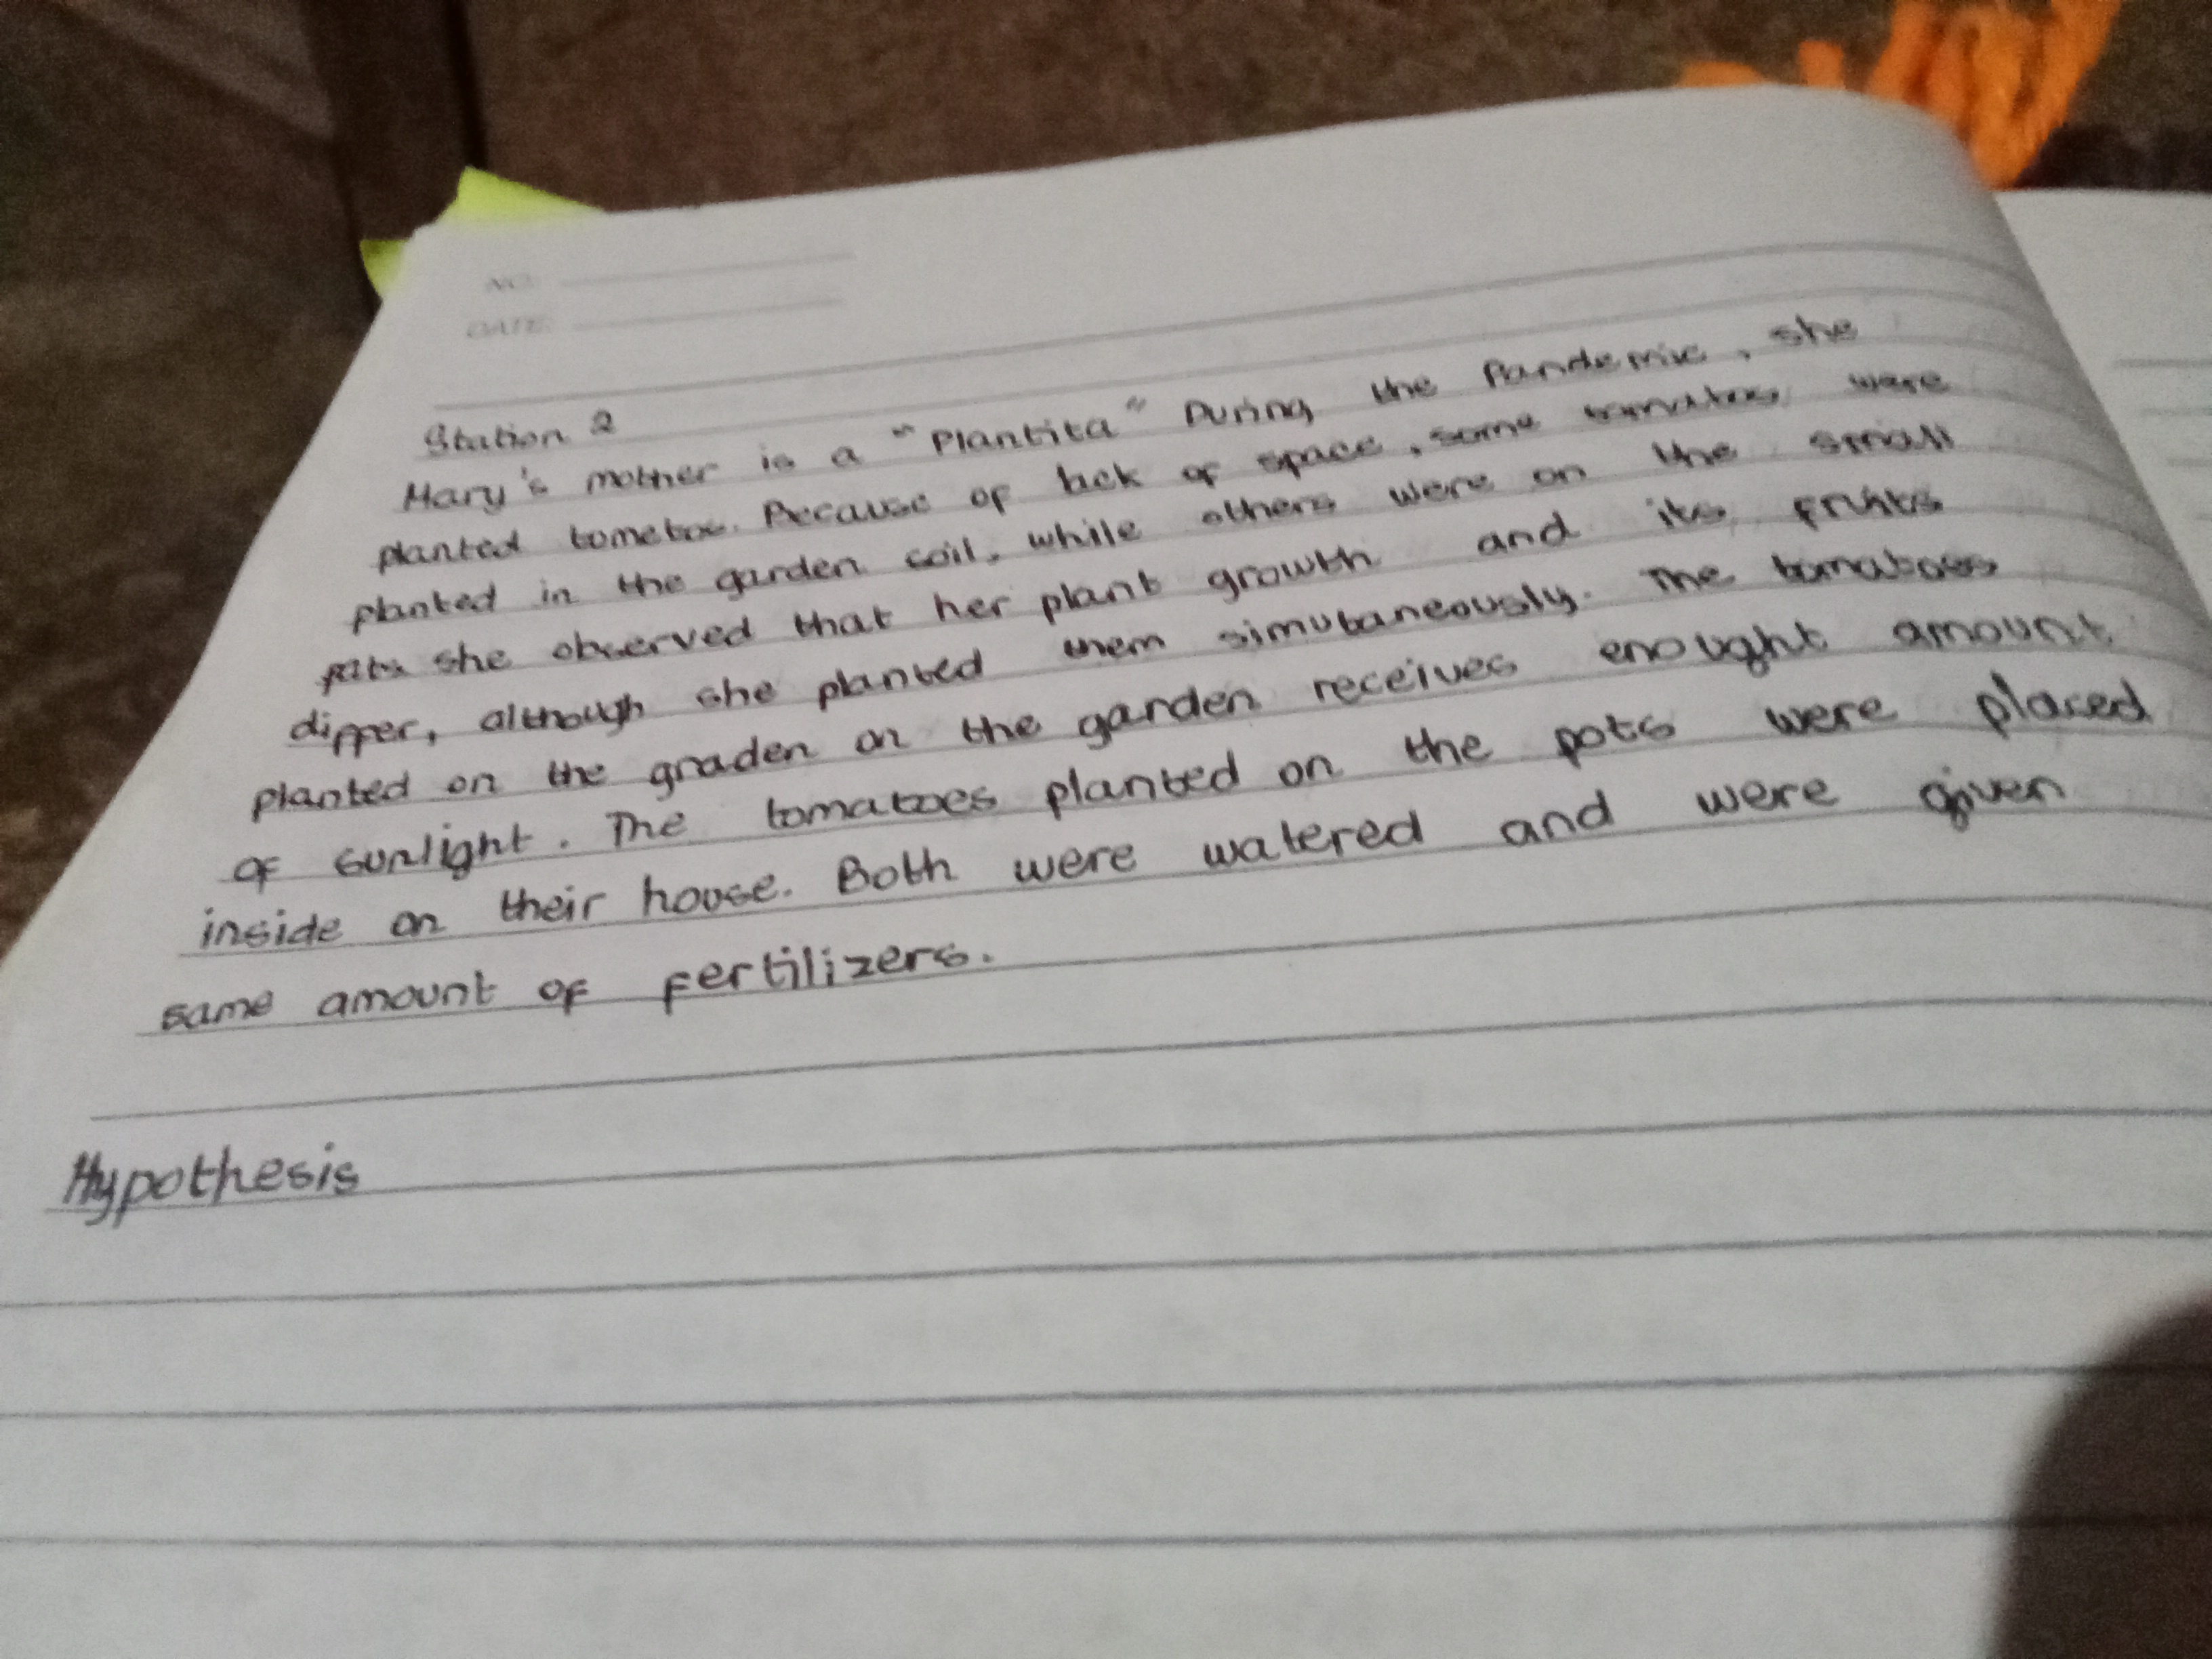 NO:
DATE:
Station 2
Mary's mother is a "Plantita" During the Pandemic, she
planted tometoe. Because of lack of space, some tomatoes were
planted in the garden soil, while others were on the small
pots she observed that her plant growth and its fruits
dipper, although she planted them simutaneously. The tomatoes
planted on the graden on the garden receives enought amount
of sunlight. The tomatoes planted on the pots were placed
inside on their house. Both were watered and were given
same amount of fertilizers.
Hypothesis